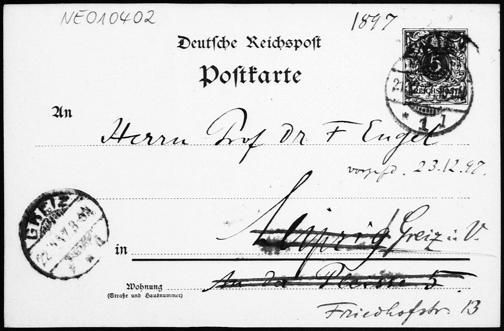 NEO10402
1897
Deutsche Reichspost
Postkarte
5
REICHSPOST
An
Herrn Prof Dr F Engel
vorgef. 23.12.97.
GREIZ
Leipzig Greiz i. V.
in
Wohnung
An der Pleisse 5.
(Straße und Hausnummer)
Friedhofstr. 13